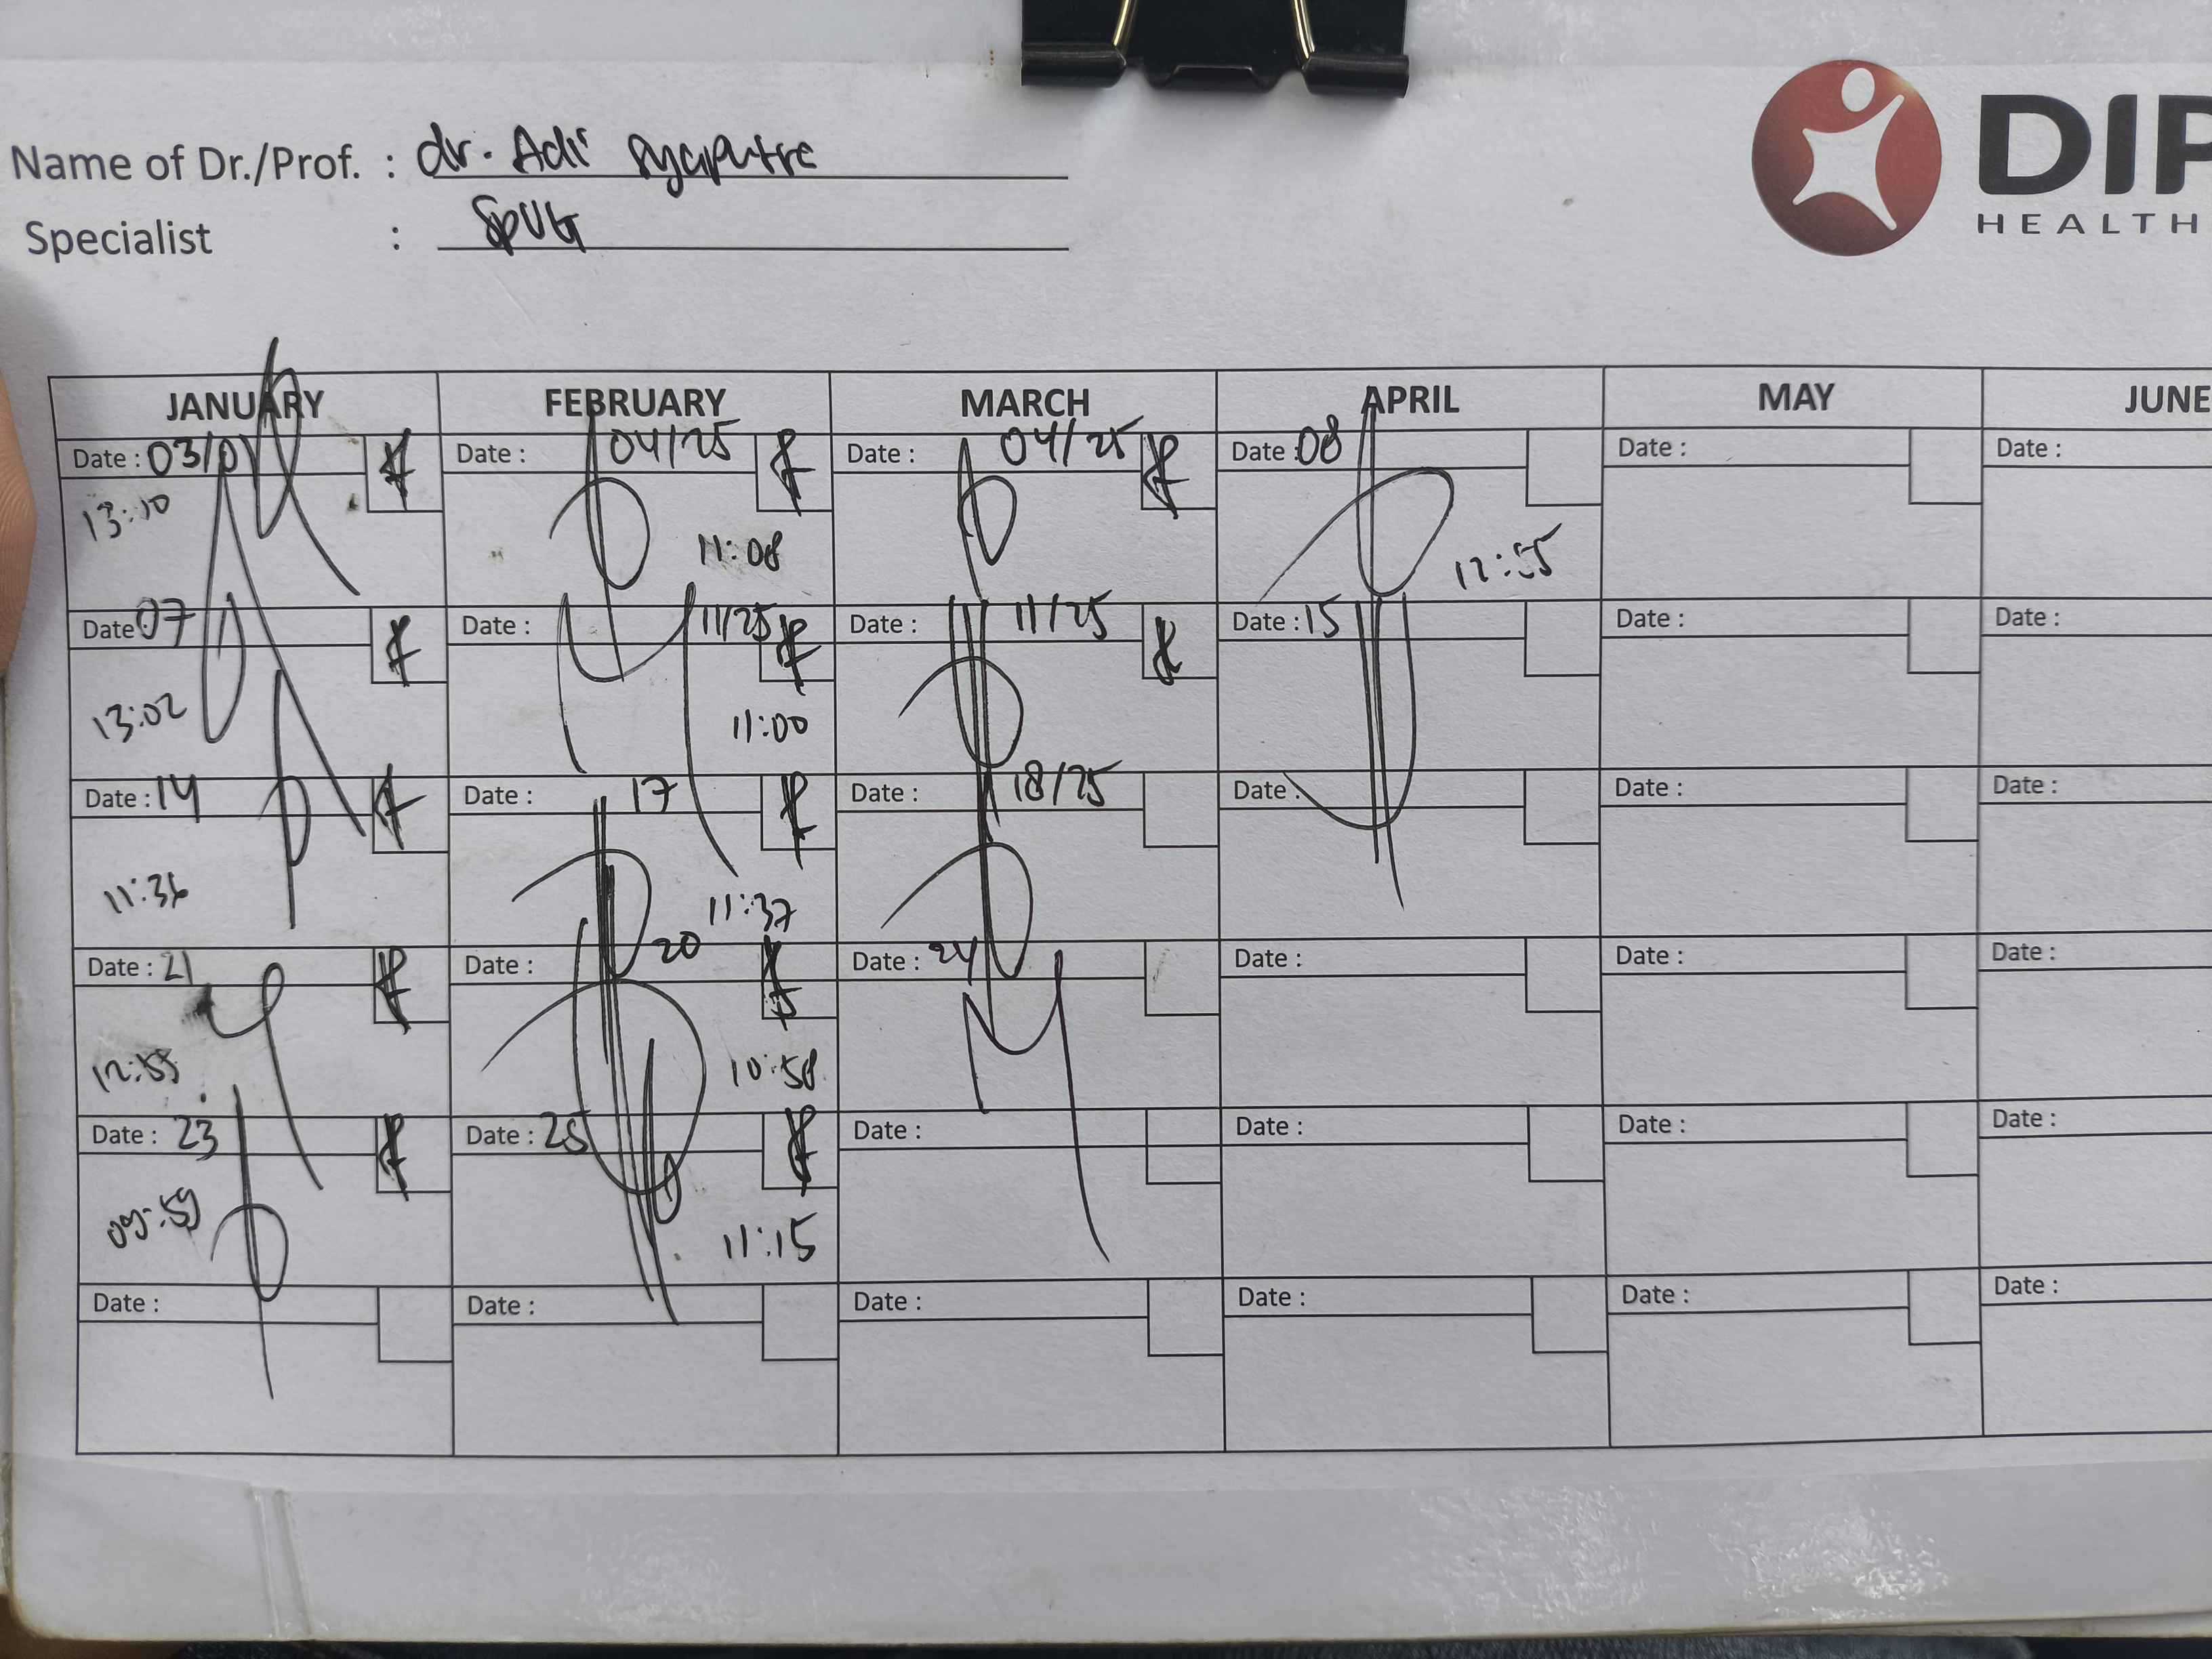 Name of Dr./Prof. : dr. Adi
Specialist :
DIP
HEALTH
JANUARY FEBRUARY MARCH APRIL MAY JUNE
Date : 03/01 Date : 04/25 Date : 04/25 Date : 08 Date : Date :
13:10 11:08 12:55
Date 07 Date : 11/25 Date : 11/25 Date : 15 Date : Date :
13:02 11:00
Date : 14 Date : 17 Date : 18/25 Date : Date : Date :
11:36 11:37
Date : 21 Date : 20 Date : 24 Date : Date : Date :
12:55 10:58
Date : 23 Date : 25 Date : Date : Date : Date :
09:59 11:15
Date : Date : Date : Date : Date : Date :